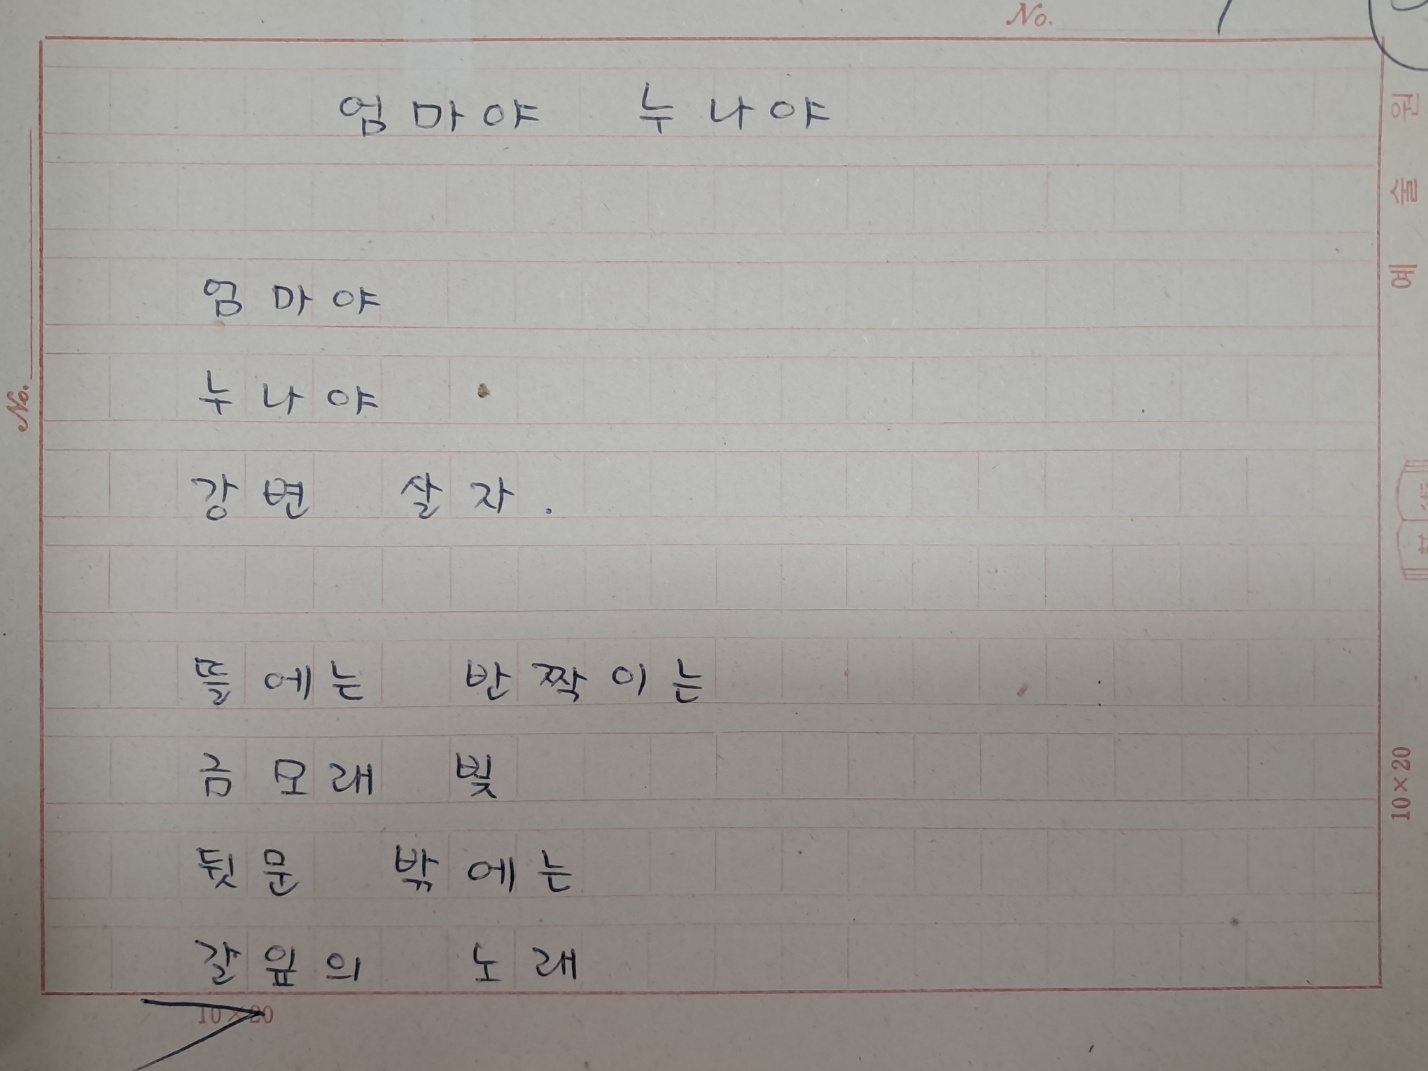 No.
엄마야 누나야
엄마야
누나야
강변 살자.
뜰에는 반짝이는
금모래 빛
뒷문 밖에는
갈잎의 노래
10×20
No.
예술원
10×20